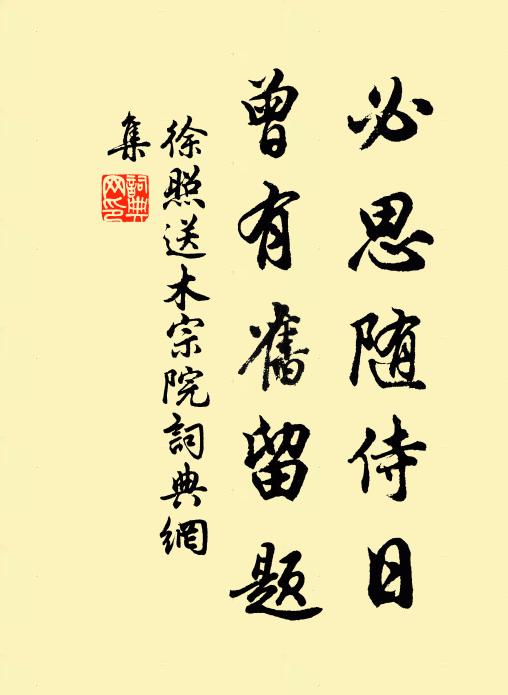 必思随侍日
曾有舊留题
徐照送木宗院詞典網
集
詞典
网印